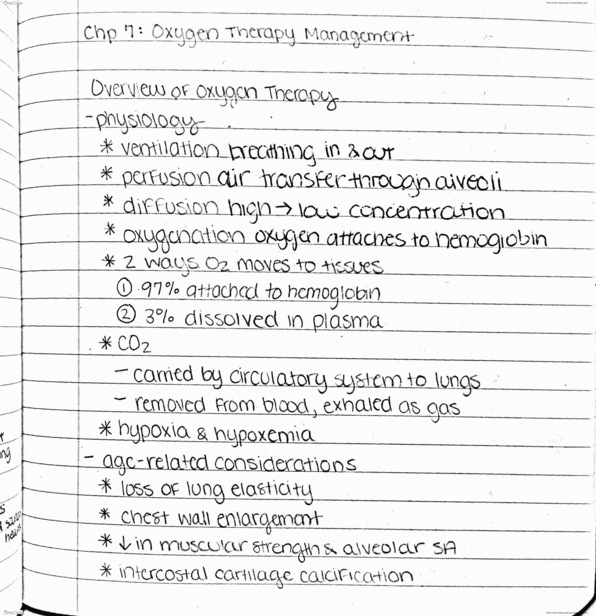 Chp 7: Oxygen Therapy Management
Overview of Oxygen Therapy
- physiology
* ventilation breathing in & out
* perfusion air transfer through alveoli
* diffusion high → low concentration
* oxygenation oxygen attaches to hemoglobin
* 2 ways O2 moves to tissues
① 97% attached to hemoglobin
② 3% dissolved in plasma
* CO2
- carried by circulatory system to lungs
- removed from blood, exhaled as gas
* hypoxia & hypoxemia
- age-related considerations
* loss of lung elasticity
* chest wall enlargement
* ↓ in muscular strength & alveolar SA
* intercostal cartilage calcification